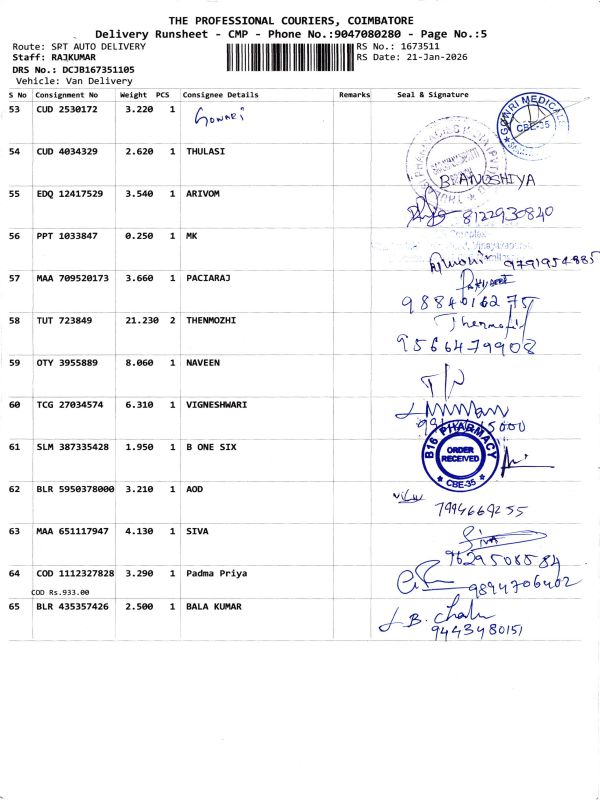 THE PROFESSIONAL COURIERS, COIMBATORE
Delivery Runsheet - CMP - Phone No.:9047080280 - Page No.:5
Route: SPT AUTO DELIVERY RS No.: 1673511
Staff: RAJKUMAR RS Date: 21-Jan-2026
DRS No.: DCJB167351105
Vehicle: Van Delivery
S No Consignment No Weight PCS Consignee Details Remarks Seal & Signature
53 CUD 2530172 3.220 1 Gowari GOWRI MEDICALS CBE-35
54 CUD 4034329 2.620 1 THULASI
B. ANUSHIYA
55 EDQ 12417529 3.540 1 ARIVOM
8122930840
56 PPT 1033847 0.250 1 MK
9791954885
57 MAA 709520173 3.660 1 PACIARAJ
9884016275
58 TUT 723849 21.230 2 THENMOZHI Thenmozhi
9566479908
59 OTY 3955889 8.060 1 NAVEEN
60 TCG 27034574 6.310 1 VIGNESHWARI
61 SLM 387335428 1.950 1 B ONE SIX B16 PHARMACY ORDER RECEIVED CBE-35
62 BLR 5950378000 3.210 1 AOD
7994669255
63 MAA 651117947 4.130 1 SIVA Siva
9629508584
64 COD 1112327828 3.290 1 Padma Priya
9894706402
COD Rs.933.00
65 BLR 435357426 2.500 1 BALA KUMAR
9443480151